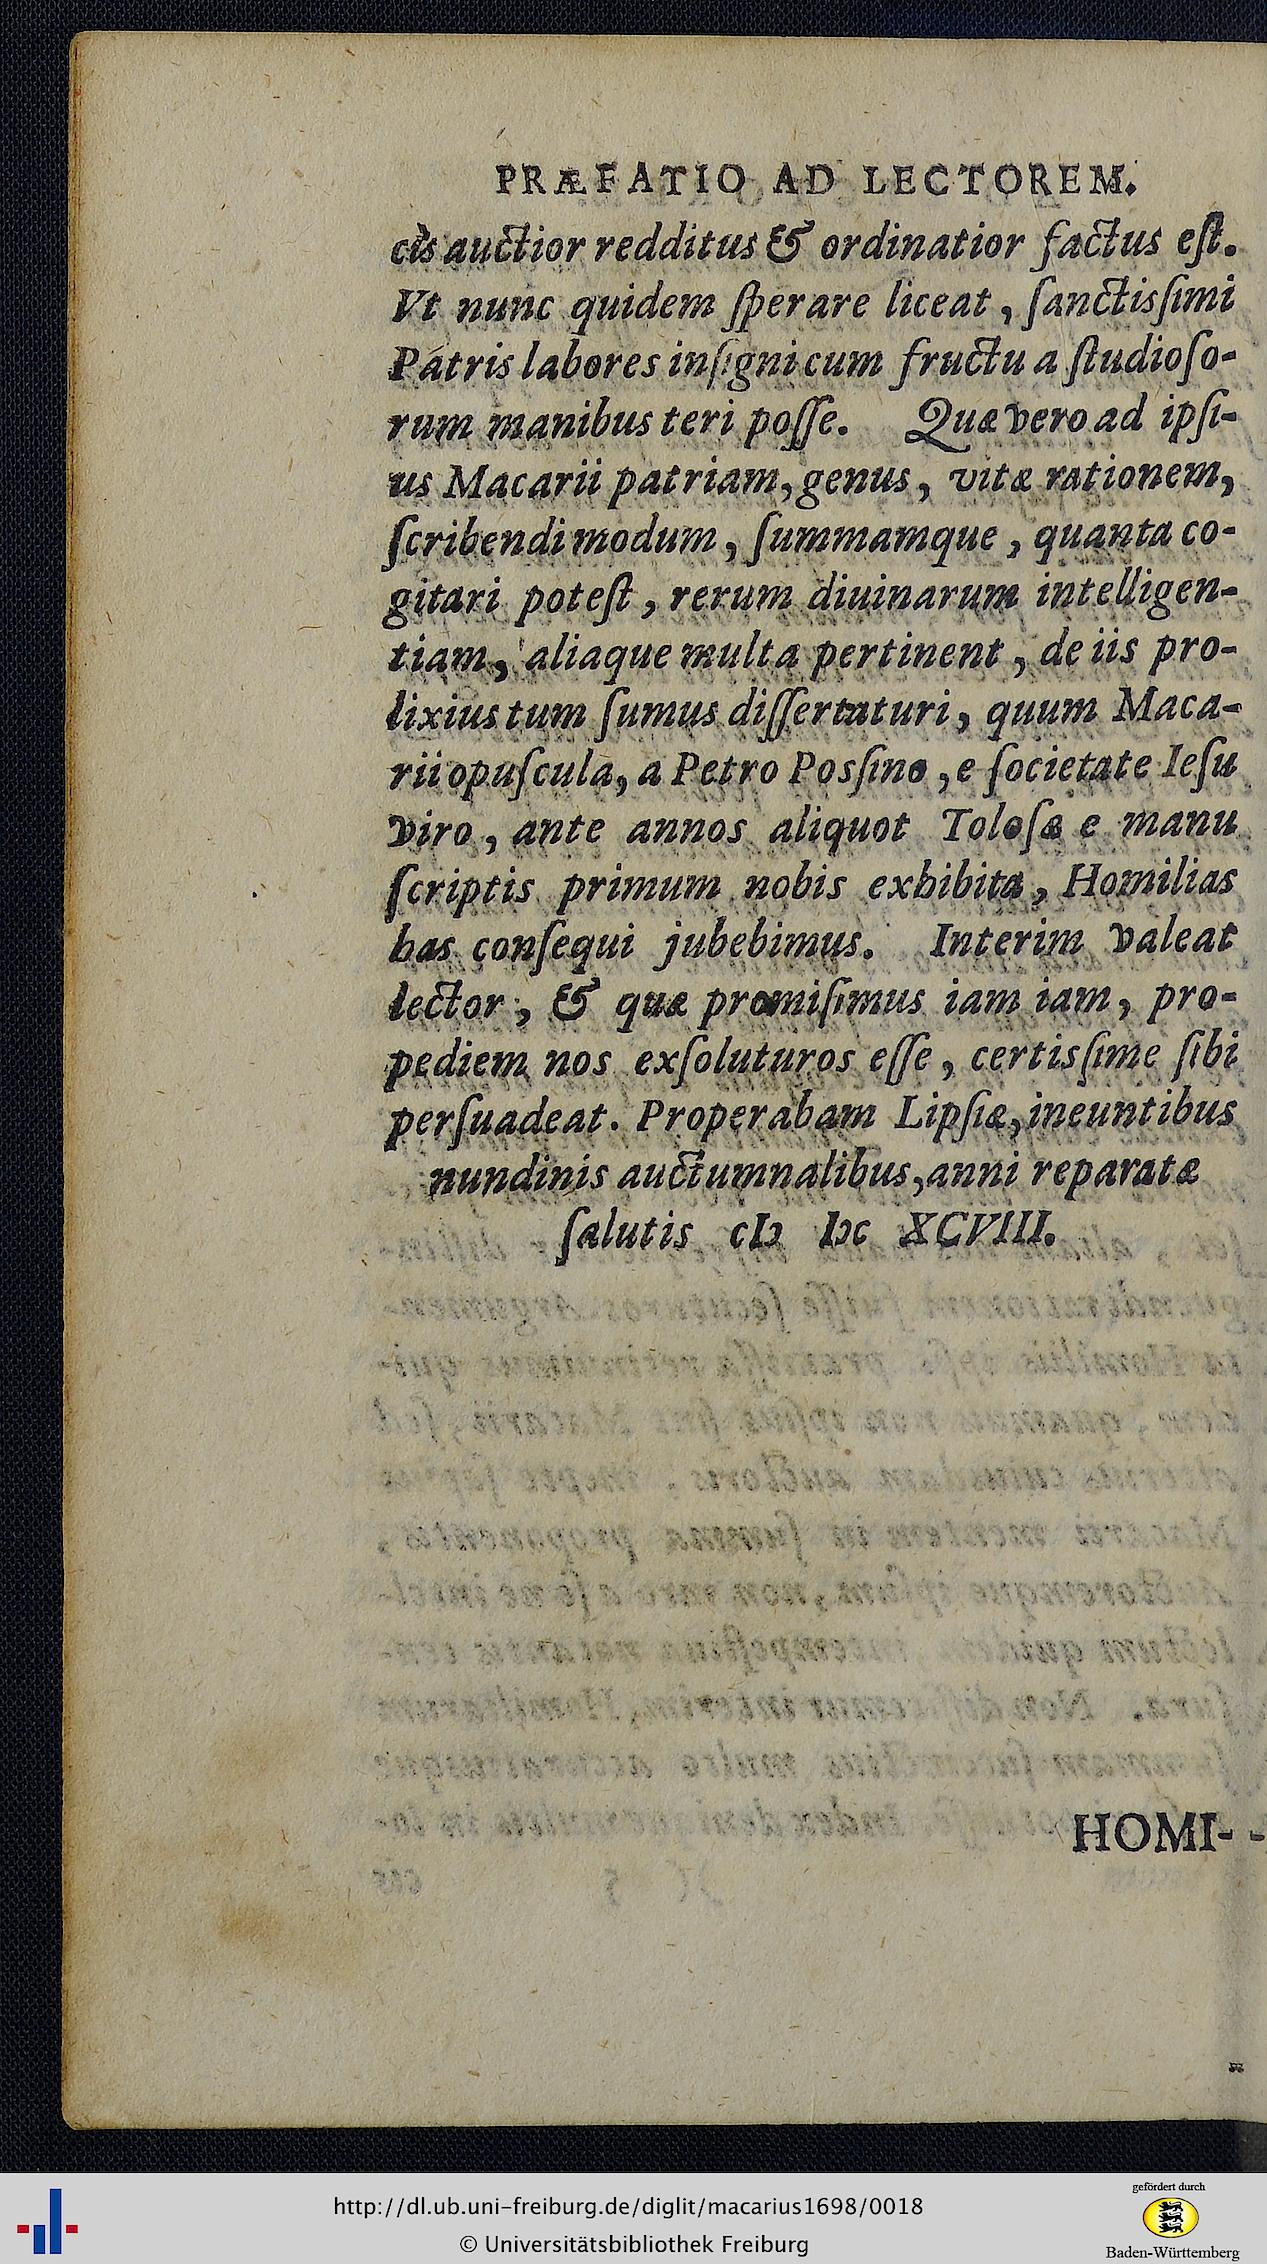 PRÆFATIO AD LECTOREM.
cis auctior redditus & ordinatior factus eſt.
Vt nunc quidem ſperare liceat, ſanctisſimi
Patris labores inſigni cum fructu a ſtudioſo-
rum manibus teri poſſe. Quæ vero ad ipſi-
us Macarii patriam, genus, vitæ rationem,
ſcribendi modum, ſummamque, quanta co-
gitari poteſt, rerum diuinarum intelligen-
tiam, aliaque multa pertinent, de iis pro-
lixius tum ſumus diſſertaturi, quum Maca-
rii opuſcula, a Petro Posſino, e ſocietate Ieſu
viro, ante annos aliquot Toloſæ e manu
ſcriptis primum nobis exhibita, Homilias
has conſequi jubebimus. Interim valeat
lector, & quæ promiſimus iam iam, pro-
pediem nos exſoluturos eſſe, certisſime ſibi
perſuadeat. Properabam Lipſiæ, ineuntibus
nundinis auctumnalibus, anni reparatæ
ſalutis cIↄ Iↄc XCVIII.
HOMI-
http://dl.ub.uni-freiburg.de/diglit/macarius1698/0018
© Universitätsbibliothek Freiburg
gefördert durch
Baden-Württemberg